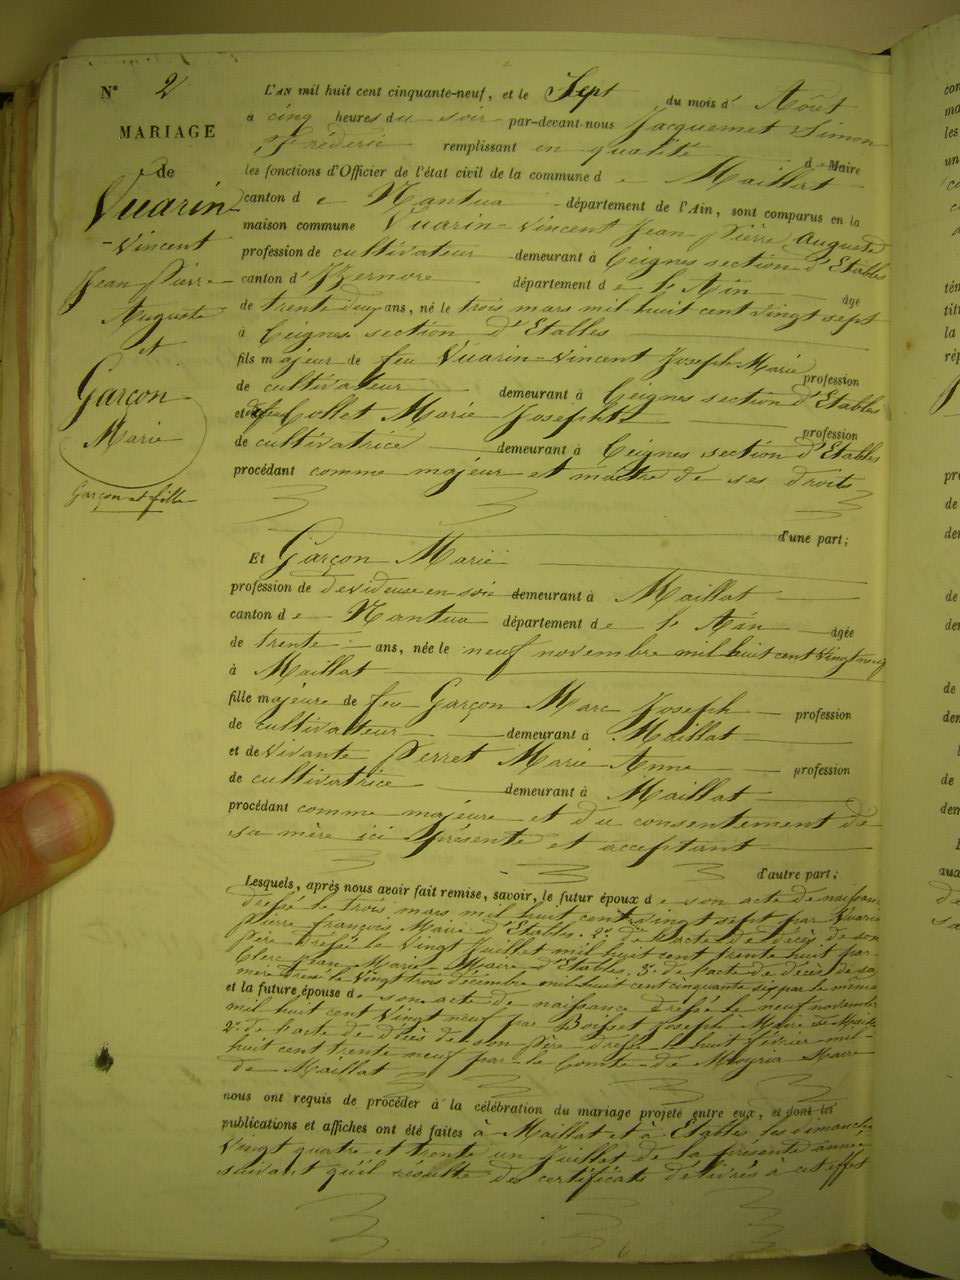 N° 2
MARIAGE
de
Vuarin
-Vincent
Jean Pierre
Auguste
et
Garçon
Marie
Garçon et fille
L'AN mil huit cent cinquante-neuf, et le Sept du mois d' Aôut
à cinq heures du soir par-devant-nous Jacquemet Simon
Frédéric remplissant en qualité d e Maire
les fonctions d'Officier de l'état civil de la commune d e Maillat
canton d e Nantua département de l'Ain, sont comparus en la
maison commune Vuarin-Vincent Jean Pierre Auguste
profession de cultivateur demeurant à Ceignes section d'Etables
canton d' Izernore département d e l'Ain âgé
de trente deux ans, né le trois mars mil huit cent vingt sept
à Ceignes section d'Etables
fils majeur de feu Vuarin-Vincent Joseph Marie profession
de cultivateur demeurant à Ceignes section d'Etables
et de feu Collet Marie Josephte profession
de cultivatrice demeurant à Ceignes section d'Etables
procédant comme majeur et maître de ses droits
d'une part;
Et Garçon Marie
profession de devideuse en soie demeurant à Maillat
canton d e Nantua département d e l'Ain âgée
de trente ans, née le neuf novembre mil huit cent vingt neuf
à Maillat
fille majeure de feu Garçon Marc Joseph profession
de cultivateur demeurant à Maillat
et de vivante Perret Marie Anne profession
de cultivatrice demeurant à Maillat
procédant comme majeure et du consentement de
sa mère ici présente et acceptant
d'autre part;
Lesquels, après nous avoir fait remise, savoir, le futur époux d e son acte de naissance
dressé le trois mars mil huit cent vingt sept par Vuarin
pierre françois, Maire d'Etables. 2° de l'acte de décès de son
père dressé le vingt Juillet mil huit cent trente huit par
Clerc Jean Marie, Maire d'Etables, 3° de l'acte de décès de sa
mère dressé le vingt trois décembre mil huit cent cinquante six par le même
et la future épouse d e son acte de naissance dressé le neuf novembre
mil huit cent vingt neuf par Boisset Joseph Maire de Maillat
2° de l'acte de décès de son père dressé le huit février mil
huit cent trente neuf par le Comte de Moyria Maire
de Maillat
nous ont requis de procéder à la célébration du mariage projeté entre eux, et dont les
publications et affiches ont été faites à Maillat et à Etables les dimanche
vingt quatre et trente un Juillet de la présente année
suivant qu'il résulte des certificats délivrés à cet effet